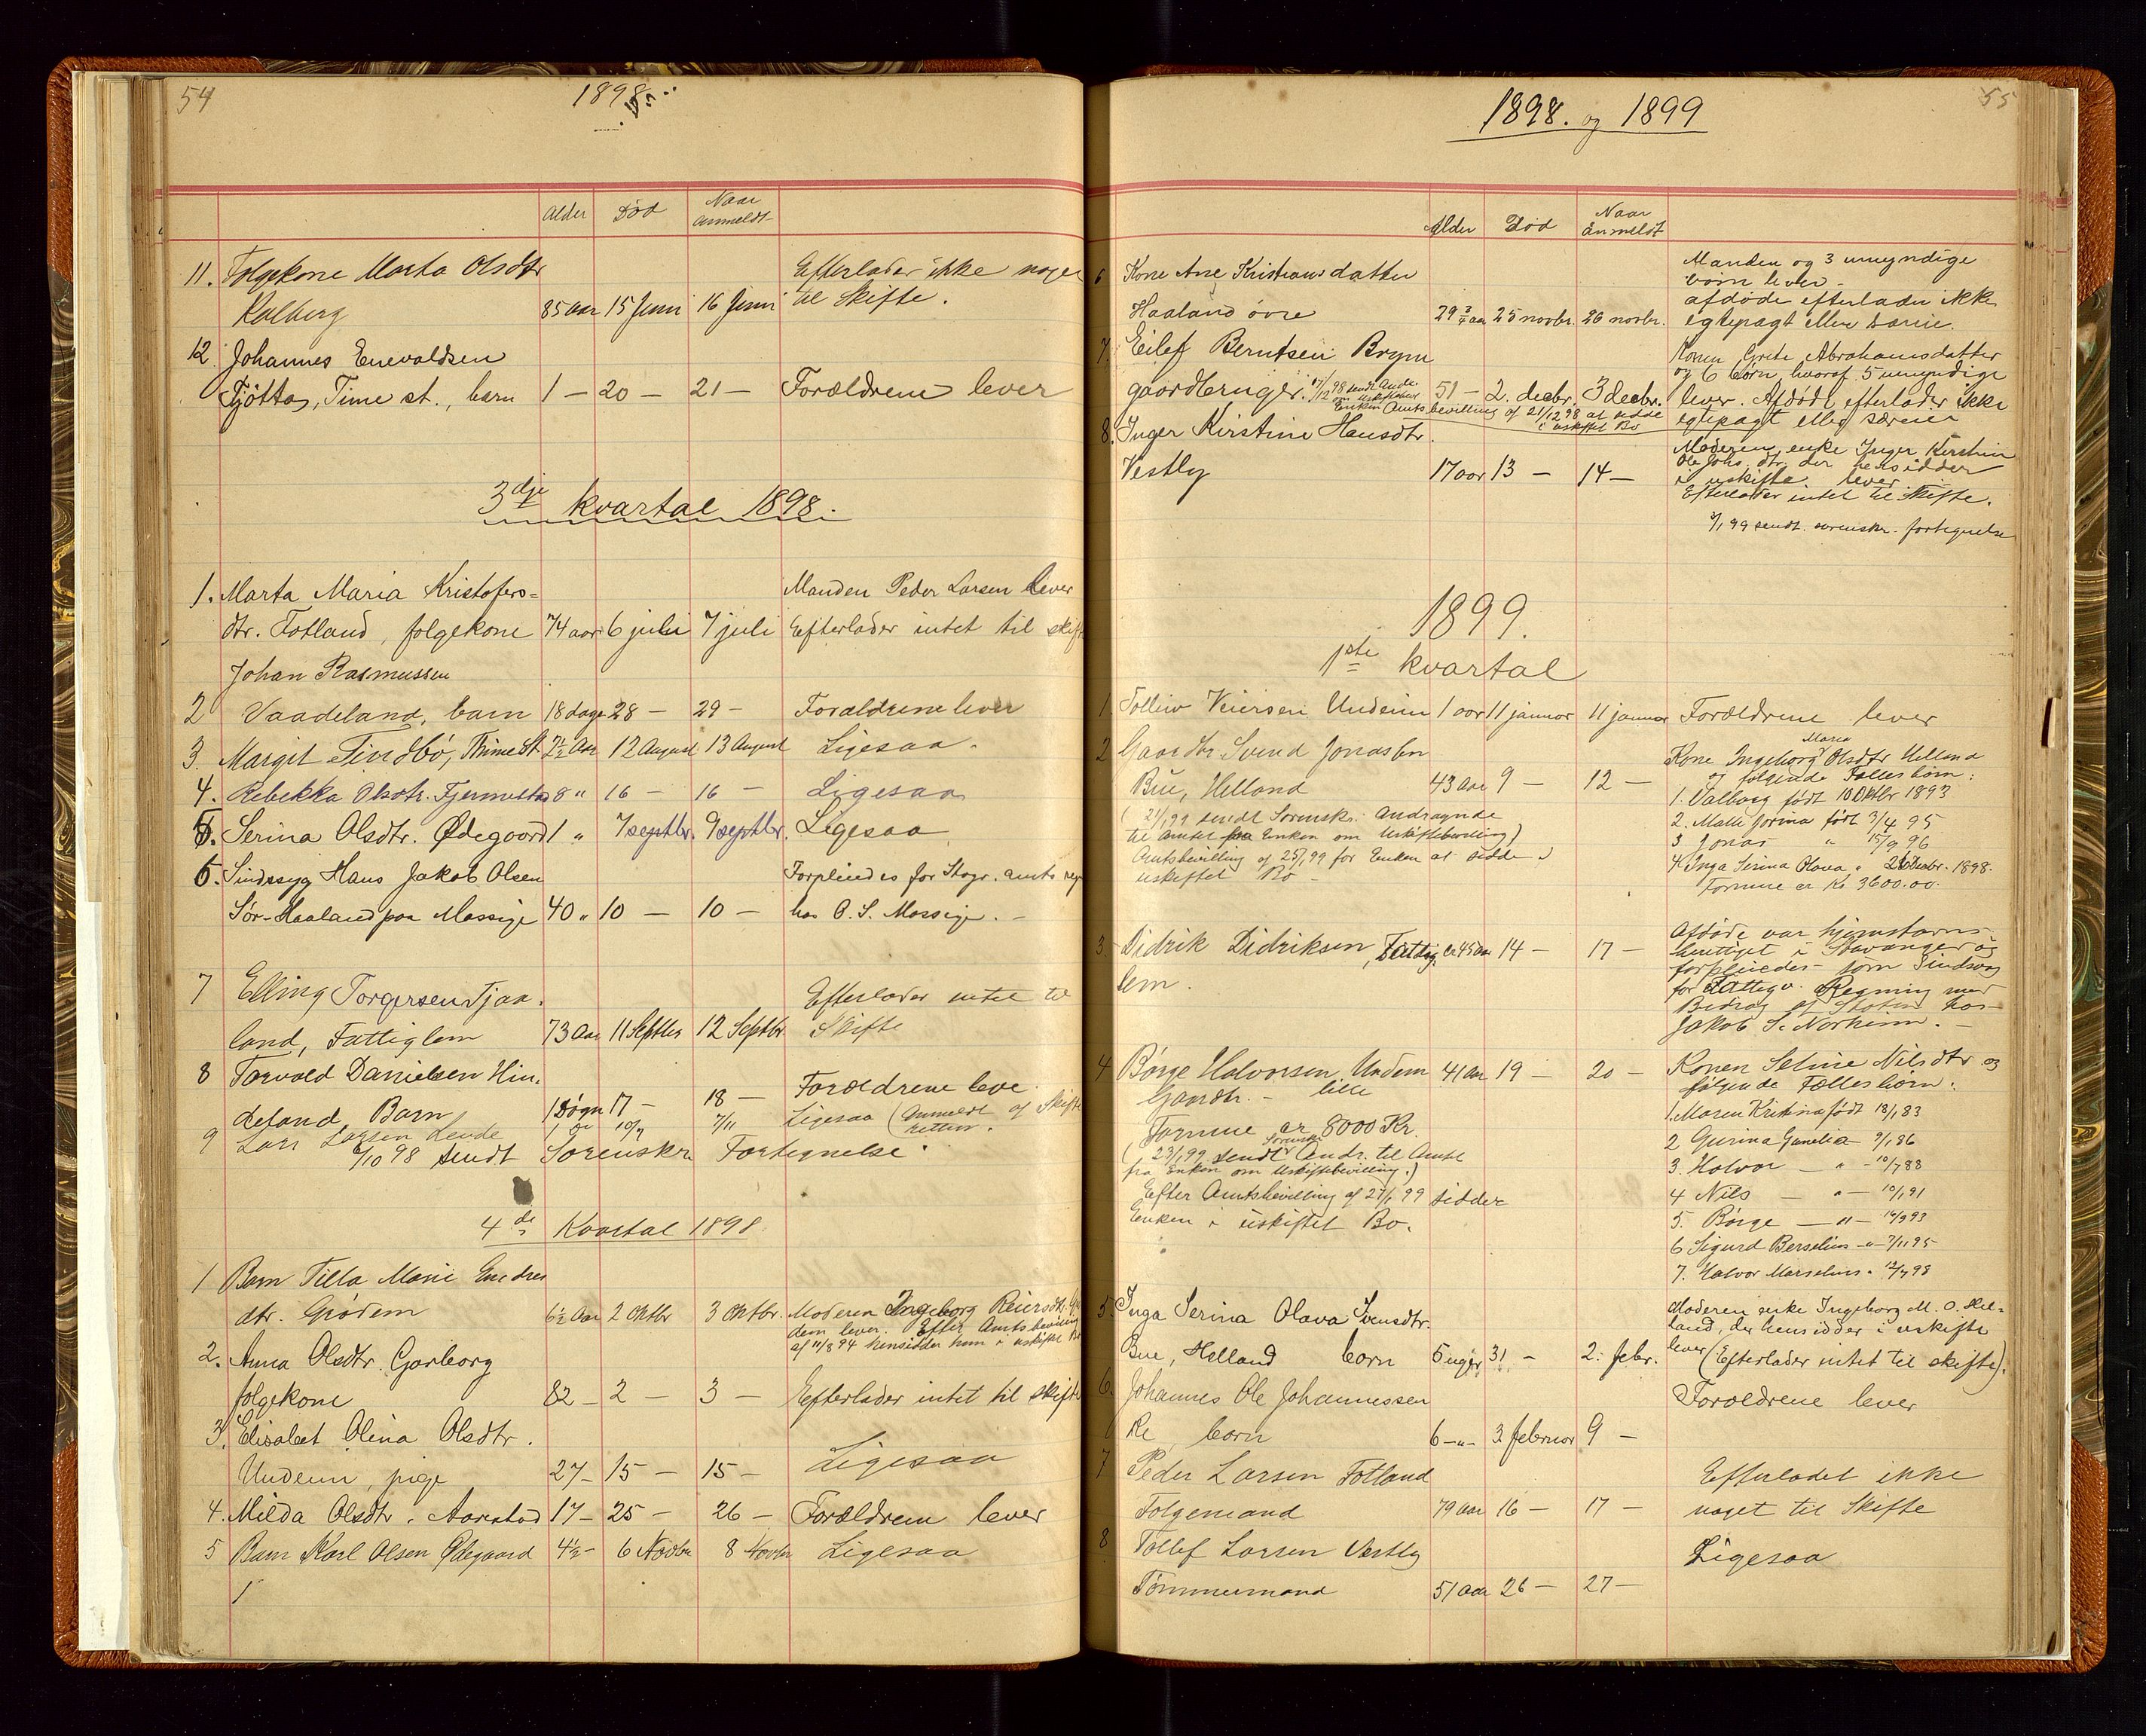 54
1898
Alder Død Naar anmeldt
11. Folgekone Marta Olsdtr Efterlader ikke noget
Kalberg 85 aar 15 Juni 16 Juni til Skifte.
12 Johannes Enevaldsen
Fjötta, Time st., barn 1 — 20 — 21 — Forældrene lever
3dje kvartal 1898.
1. Marta Maria Kristofers= Manden Peder Larsen lever
dtr. Fotland, folgekone 74 aar 6 juli 7 juli Efterlader intet til skifte
Johan Rasmussen
2 Vaadeland, barn 18 dage 28 — 29 — Forældrene lever
3. Margit Tindbø, Thime St 2½ Aar 12 August 13 August Ligesaa.
4. Rebekka Olsdtr. Fjermestad 8 " 16 — 16 — Ligesaa
5. Serina Olsdtr. Ødegaard 1 " 7 septbr. 9 septbr. Ligesaa
6. Sindssyg Hans Jakob Olsen Forpleiedes for Stvgr. amts regn
Sør-Haaland paa Mossige 40 " 10 — 10 — hos O. S. Mossige. —
7 Elling Torgersen Tjaa. Efterlader intet til
land, Fattiglem 73 Aar 11 Septbr 12 Septbr Skifte
8 Torvald Danielsen Hin. Forældrene leve
deland, Barn 1 Døgn 17 — 18 —
9 Lars Larsen Lende 10/9 7/11 Ligesaa (Anmeldt af Skifte
retten.
6/10 98 sendt Sorenskr. Fortegnelse.
4de Kvartal 1898.
1 Barn Tilla Marie Endres
dtr. Grødem 6½ Aar 2 Oktbr 3 Oktbr. Moderen Ingeborg Reiersdtr. Grø
dem lever. Efter Amtsbevilling
af 11/8 94 hensidder hun i uskiftet Bo
2. Anna Olsdtr. Garborg
folgekone 82 — 2 — 3 — Efterlader intet til skifte
3. Elisabet Olina Olsdtr.
Undeim, pige 27 — 15 — 15 — Ligesaa
4. Milda Olsdtr. Aarestad 17 — 25 — 26 — Forældrene lever
5 Barn Karl Olsen Ødegaard 4½ — 6 Novbr 8 Novbr Ligesaa
55
1898. og 1899
Alder Død Naar Anmeldt
6 Kone Ane Kristiansdatter Manden og 3 umyndige
børn lever —
Haaland øvre 29 3/4 aar 25 novbr. 26 novbr. afdøde efterlader ikke
egtepagt eller særeie.
7. Eilef Berntsen Bryne Konen Grete Abrahamsdatter
og 6 børn, hvoraf 5 umyndige
gaardbruger. 17/12 98 sendt Andr. om uskiftet Bo 51 — 2. decbr. 3 decbr. lever. Afdøde efterlader ikke
Enken Amtsbevilling af 21/12 98 at sidde i uskiftet Bo egtepagt eller særeie
8. Inger Kirstine Hansdtr. Moderen, enke Inger Kirstine
Ole Johs. dtr. der hensidder
Vestly 17 aar 13 — 14 — i uskifte lever
Efterlader intet til Skifte.
3/1 99 sendt sorenskr. fortegnelse
1899.
1ste kvartal
1 Tolleiv Veiersen Undeim 1 aar 11 januar 11 januar Forældrene lever
2 Gaardbr. Svend Jonassen Kone Ingeborg Maria Olsdtr Helland
og følgende Fællesbørn:
Bue, Helland 43 Aar 9 — 12 — 1. Valborg født 10 Oktbr 1893
(21/1 99 sendt Sorenskr. Andragende 2. Malli Jorina født 3/4 95
til Amtet fra Enken om Uskiftebevilling) 3 Jonas " 15/9 96
Amtsbevilling af 25/1 99 for Enken at sidde i 4. Inga Serina Olava " 26 Decbr. 1898.
uskiftet Bo — Formue er Kr. 3600.00.
3 Didrik Didriksen, Fattig ca 45 Aar 14 — 17 — Afdøde var hjemstavns
lem. berettiget i Stavanger og
forpleiedes som Sindssyg
for Fattigv. Regning med
Bidrag af Staten hos
Jakob S. Norheim. —
4 Børge Halvorsen Undem 41 Aar 19 — 20 — Konen Seline Nilsdtr og
lille
Gaardbr. — følgende Fællesbørn:
1. Maren Kristina født 18/1 83
Formue er 8000 Kr. 2 Gurina Gunelia — 9/1 86
(23/1 99 sendt Sorenskr. Andr. til Amtet 3. Halvor — " — 10/7 88
fra Enken om Uskiftebevilling.) 4 Nils — " — 10/1 91
Efter Amtsbevilling af 27/1 99 sidder 5. Børge — " — 14/9 93
Enken i uskiftet Bo. 6 Sigurd Berselius — " — 7/11 95
7. Halvor Marselius " 12/7 98
5. Inga Serina Olava Svensdtr. Moderen enke Ingeborg M. O. Hel-
land, der hensidder i uskifte
Bue, Helland barn 5 uger 31 — 2. febr. lever (Efterlader intet til skifte).
6. Johannes Ole Johannessen Forældrene lever
Re barn 6 —"— 3 februar 9 —
7 Peder Larsen Fotland Efterladet ikke
Folgemand 79 Aar 16 — 17 — noget til Skifte
8 Tollef Larsen Vestly Ligesaa
Tømmermand 51 Aar 26 — 27 —